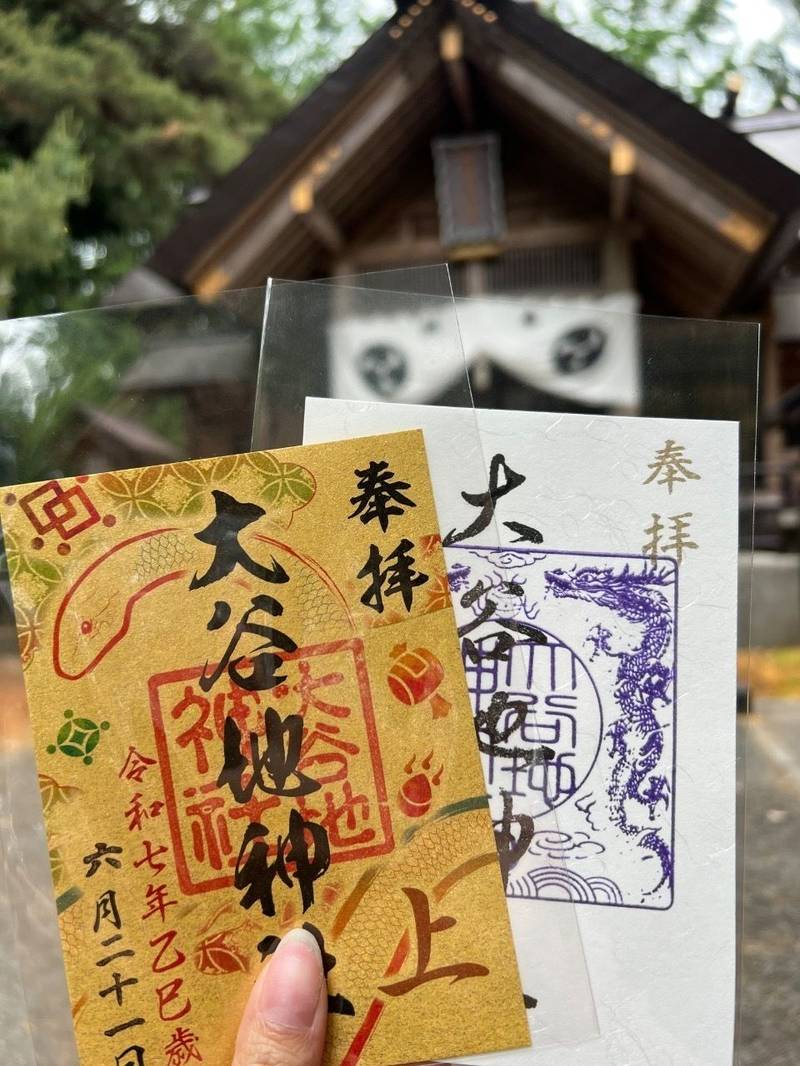 奉拝
大谷地神社
大谷地神社
令和七年乙巳歳
六月二十一日
上
奉拝
大谷地神
大谷地